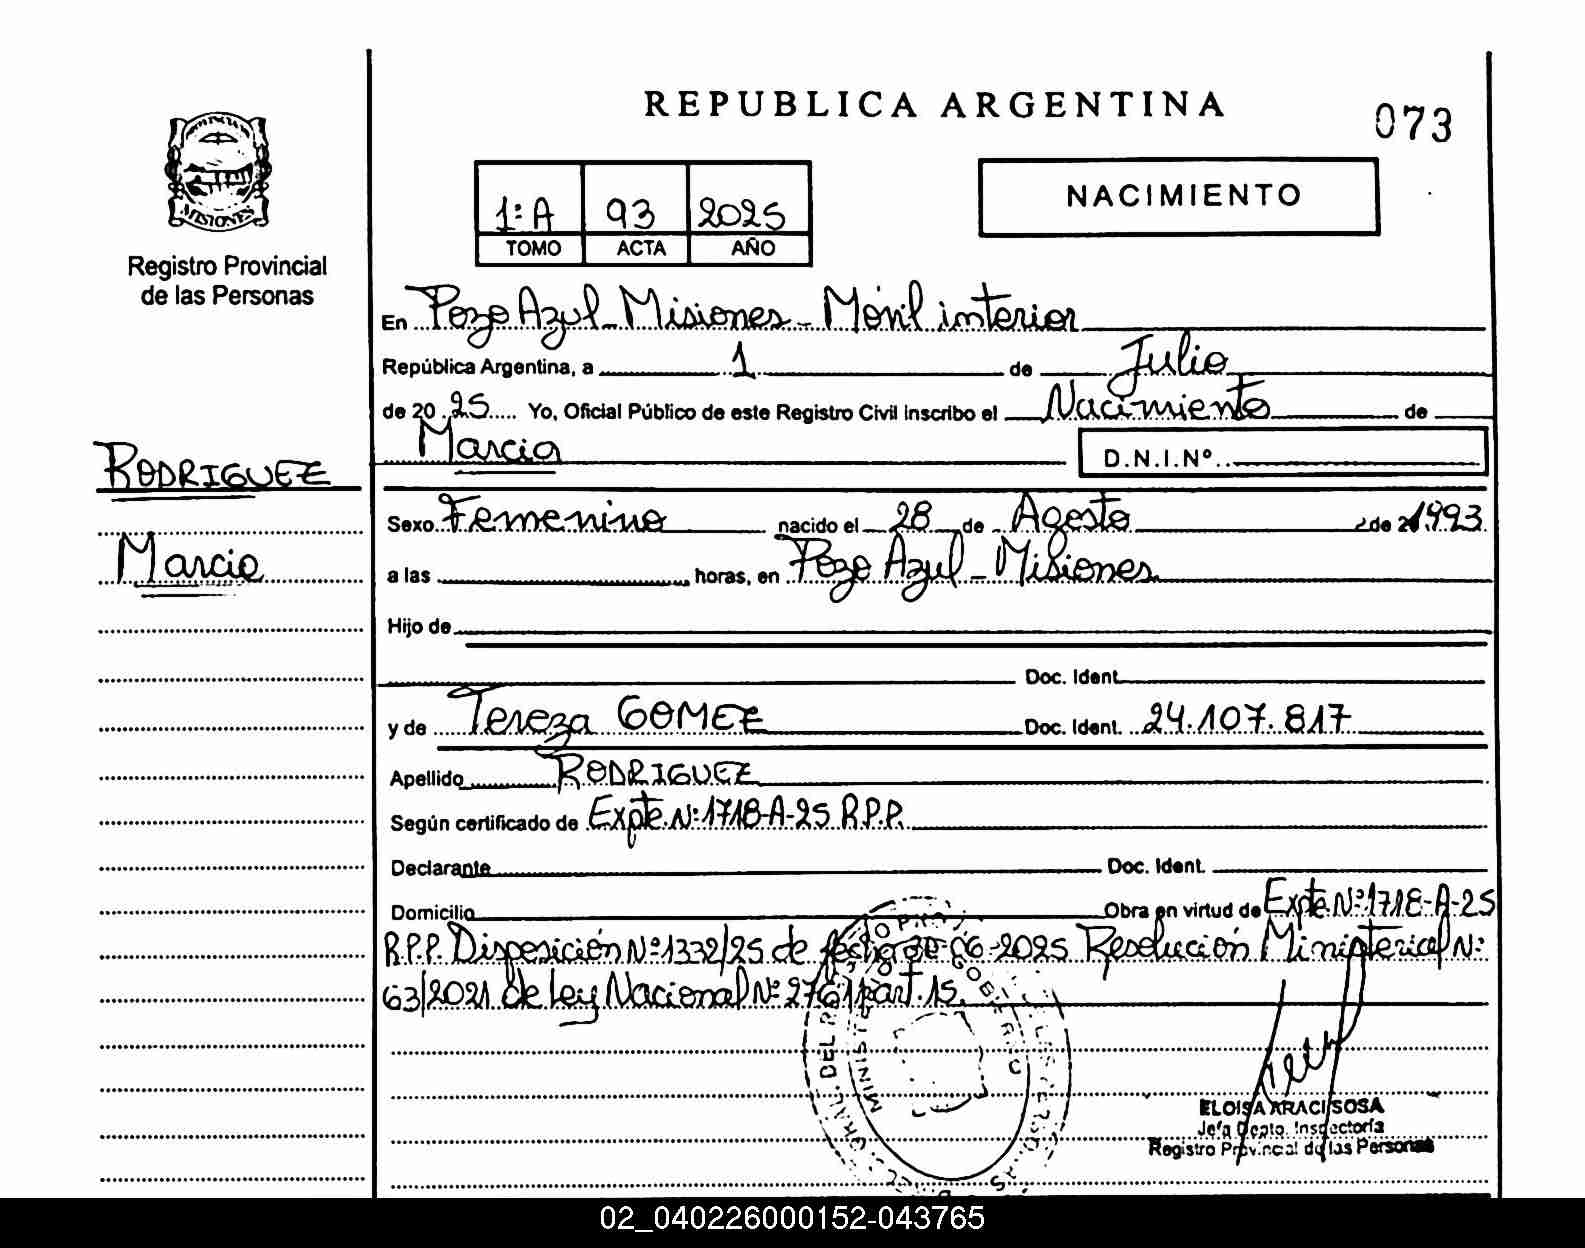 REPUBLICA ARGENTINA
073
MISIONES
Registro Provincial
de las Personas
1:A 93 2025
TOMO ACTA AÑO
NACIMIENTO
En Pozo Azul - Misiones - Móvil interior
República Argentina, a 1 de Julio
de 2025 Yo, Oficial Público de este Registro Civil inscribo el Nacimiento de
Marcia
D.N.I.Nº
RODRIGUEZ
Marcia
Sexo Femenino nacido el 28 de Agosto de 1993
a las horas, en Pozo Azul - Misiones
Hijo de
Doc. Ident.
y de Tereza GOMEZ Doc. Ident. 24.107.817
Apellido RODRIGUEZ
Según certificado de Expte.Nº:1718-A-25 R.P.P.
Declarante Doc. Ident.
Domicilio Obra en virtud de Expte Nº:1718-A-25
R.P.P. Disposición Nº:1332/25 de fecha 30-06-2025 Resolución Ministerial Nº:
63/2021 de Ley Nacional Nº: art. 15.
ELOISA ARACI SOSA
Jefa Depto. Inspectoría
Registro Provincial de las Personas
02_040226000152-043765